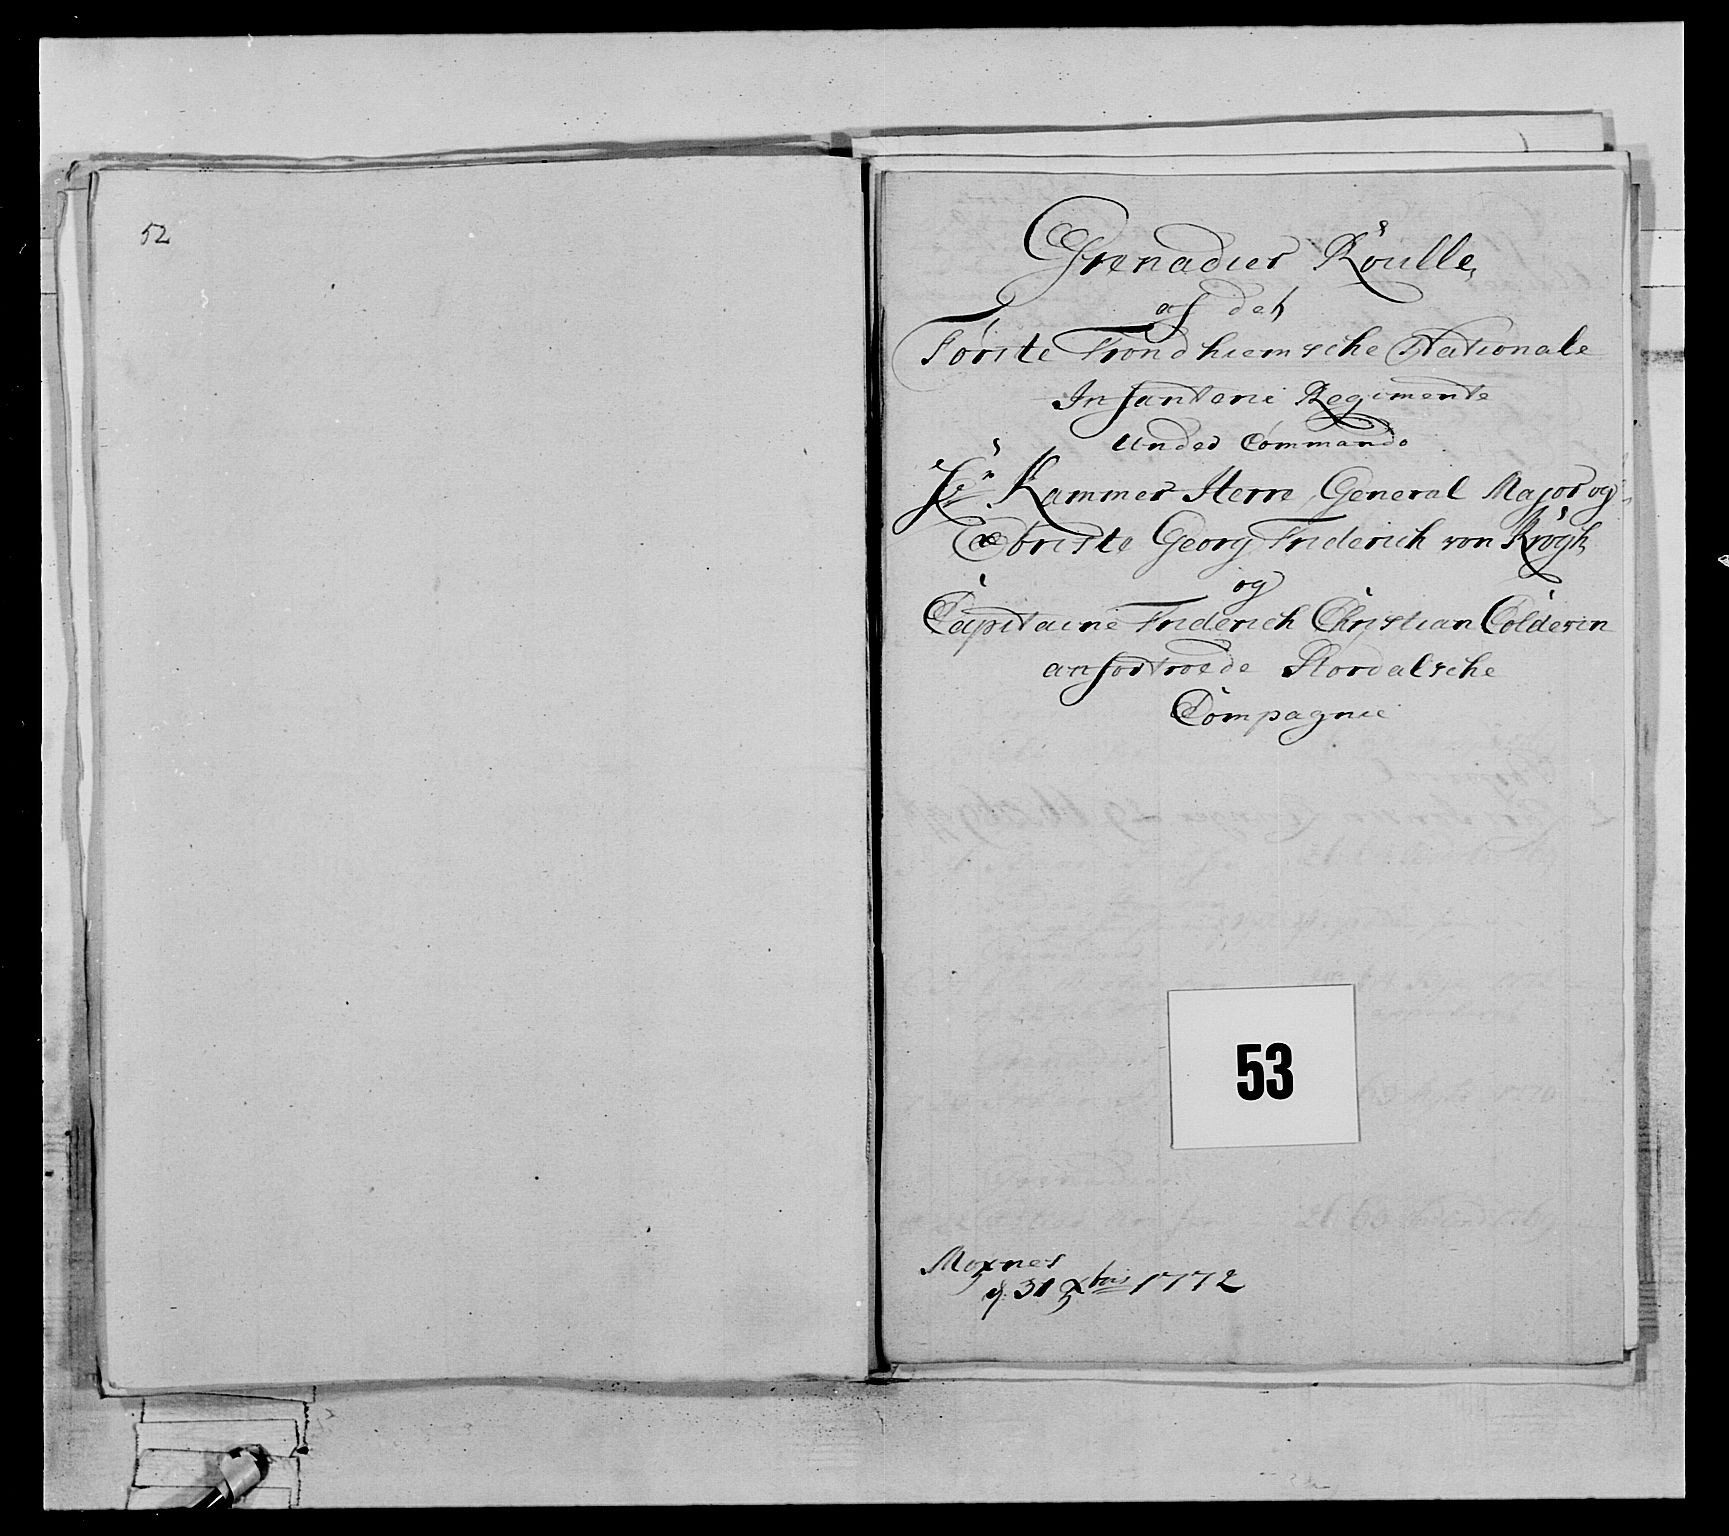 52
Grenadier Roulle,
af det
Første Trondhiemsche Nationale
Infanterie Regimente
under Commando
Hr. Kammer Herre General Major og
Obriste Georg Friderich von Krogh
og
Capitaine Friderich Christian Colderin
anfortroede Stordalsche
Compagnie
53
Moxnes
d. 31 Xbris 1772